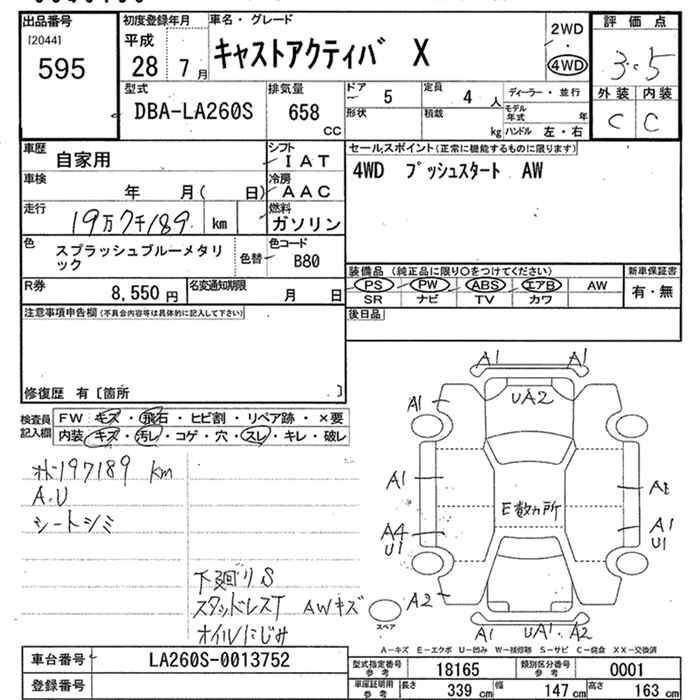 出品番号
[2044]
595
初度登録年月
平成
28 7 月
車名・グレード
キャストアクティバ X
2WD
・
4WD
評価点
3.5
外装 内装
C C
型式
DBA-LA260S
排気量
658
CC
ドア
5
定員
4 人
形状
積載
kg
ディーラー・並行
モデル年式 年
ハンドル 左・右
車歴
自家用
シフト
IAT
車検
年 月( 日)
冷房
AAC
走行
19万7千189 km
燃料
ガソリン
色
スプラッシュブルーメタリック
色替
色コード
B80
R券
8,550 円
名変通知期限
月 日
セールスポイント(正常に機能するものに限ります)
4WD プッシュスタート AW
装備品 (純正品に限り○をつけてください)
PS PW ABS エアB AW
SR ナビ TV カワ
新車保証書
有・無
後日品
注意事項申告欄(不具合内容等は具体的に記入して下さい)
修復歴 有〔箇所 〕
検査員記入欄
FW キズ・飛石・ヒビ割・リペア跡・×要
内装 キズ・汚レ・コゲ・穴・スレ・キレ・破レ
メーター197189 km
A.U
シートシミ
下廻りS
スタッドレスT AWキズ
オイルにじみ
A1 A1
A1 UA2
A1 E数ヵ所
A4 A1
U1 U1
A2
A1 UA1 A2
スペア
A-キズ E-エクボ U-凹み W-補修跡 S-サビ C-腐食 XX-交換済
車台番号
LA260S-0013752
登録番号
型式指定番号 参考
18165
類別区分番号 参考
0001
車庫証明用 参考
長さ 339 cm 幅 147 cm 高さ 163 cm